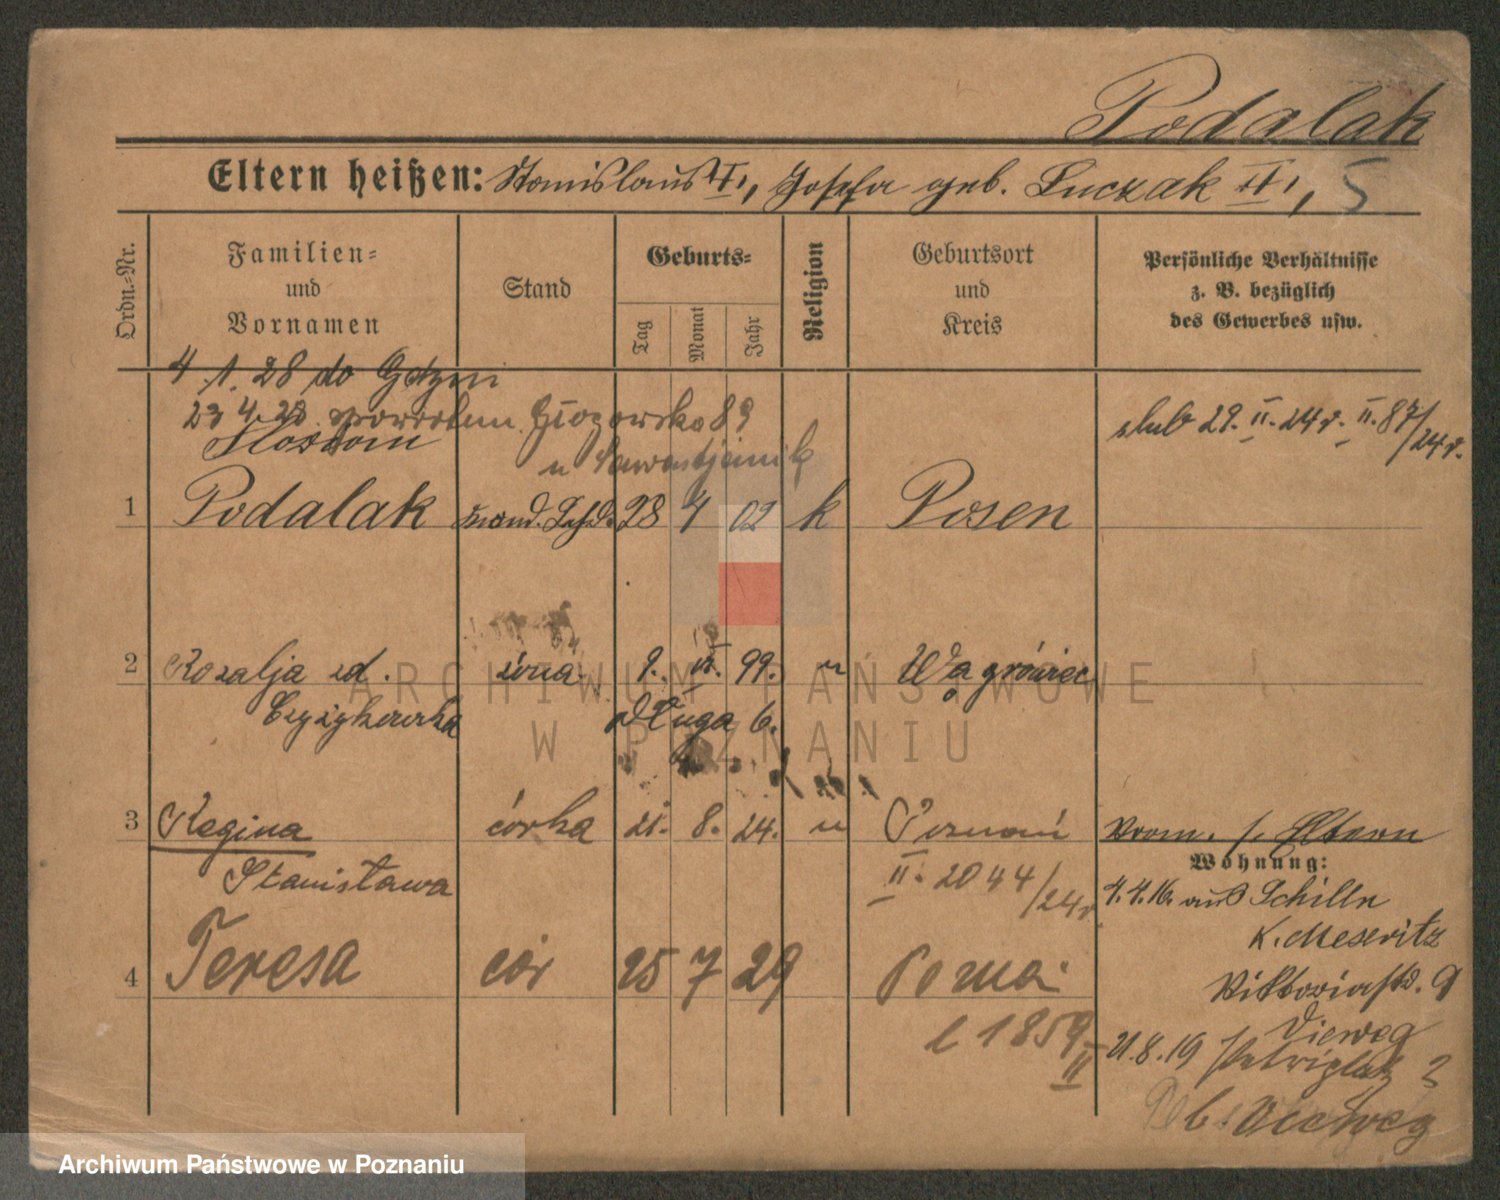 Podalak
Eltern heißen: Stanislaus II, Josefa geb. Luczak II, 5
Ordn.-Nr.
Familien-
und
Vornamen
Stand
Geburts-
Tag
Monat
Jahr
Religion
Geburtsort
und
Kreis
Persönliche Verhältnisse
z. B. bezüglich
des Gewerbes usw.
4.1.28 do Gdyni
23 4.28. spowrotem Głogowska 89
ślub 29. II. 24 r. II. 87/24 r.
1 Podalak 28 4 02 k Posen
2 Rozalja zd. żona 9. 99. " Wągrówiec
Czyżykowska Długa 6.
ARCHIWUM PAŃSTWOWE
W POZNANIU
3 Regina córka 21. 8. 24. " Poznań Eltern
Stanisława II. 2044/24 r.
Wohnung:
4.4.16. aus Schilln
K. Meseritz
Viktoriastr. 9
Vieweg
4 Teresa cór 25 7 29
l 1859 II
21.8.19 Petriplatz 3
b. Vieweg
Archiwum Państwowe w Poznaniu